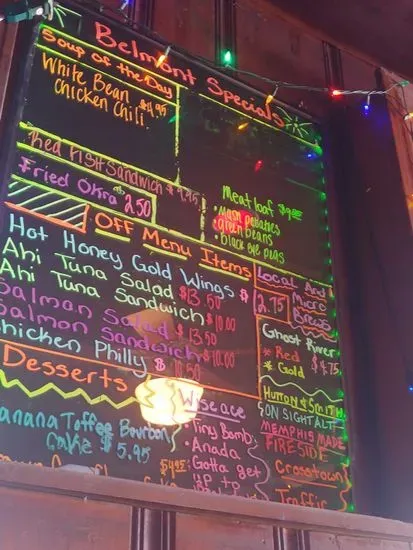 Belmont Specials
Soup of the Day
White Bean
Chicken Chili $4.95
Red Fish Sandwich $9.95
Fried Okra 2.50
Meatloaf $9.95
• Mash potatoes
• green beans
• black eye peas
OFF Menu Items
Hot Honey Gold Wings $
Ahi Tuna Salad $13.50
Ahi Tuna Sandwich $10.00
Salmon Salad $13.50
Salmon Sandwich $10.00
Chicken Philly $10.50
Local And
Micro
Brews
2.75
Ghost River
* Red $4.75
* Gold
Hutton & Smith
ON SIGHT ALT
MEMPHIS MADE
FIRESIDE
Crosstown
Traffic
Desserts
Banana Toffee Bourbon
Cake $5.95
$4.95
Wiseacre
• Tiny Bomb
• Anada
• Gotta get
up to